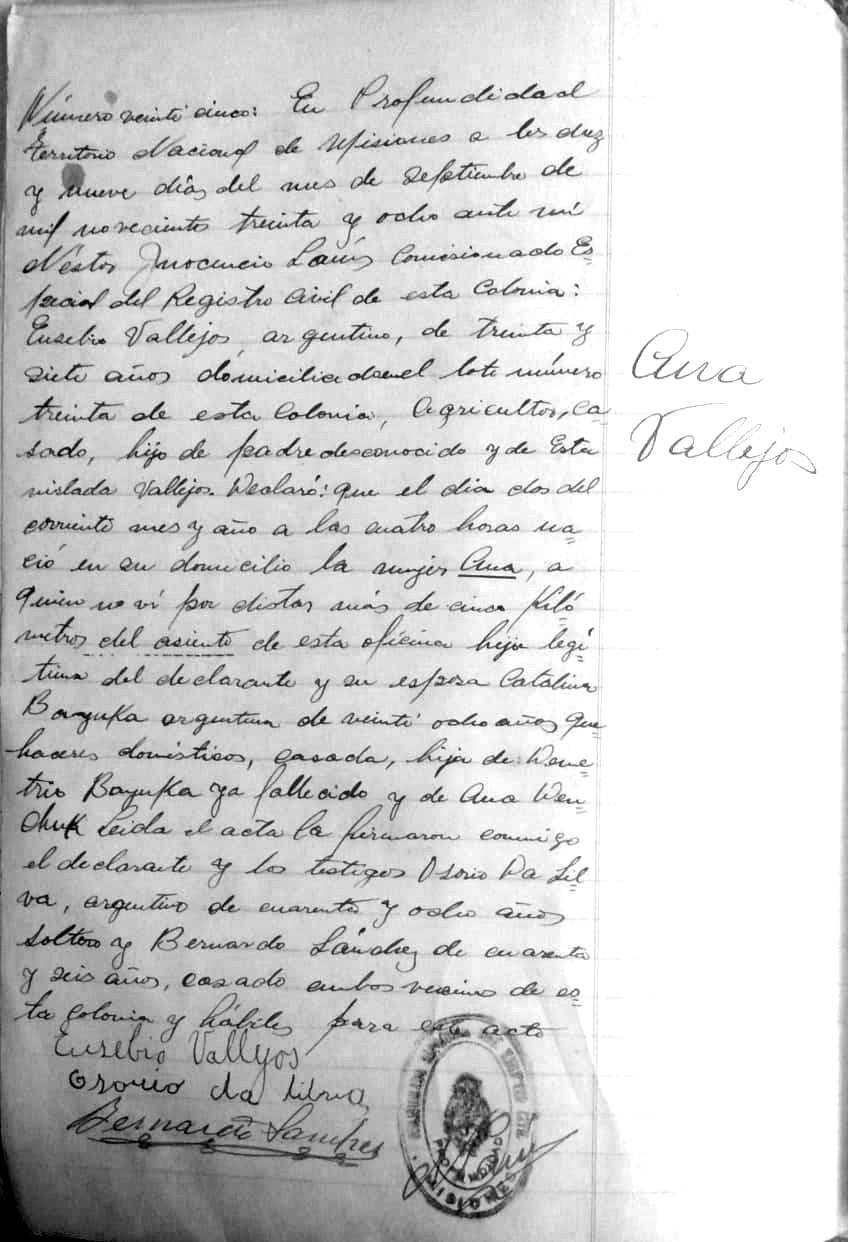 Número veinti cinco: En Profundidad
territorio Nacional de Misiones a los diez
y nueve días del mes de septiembre de
mil novecientos treinta y ocho ante mí
Néstor Inocencio Lanús Comisionado Es=
pecial del Registro Civil de esta Colonia:
Eusebio Vallejos, argentino, de treinta y
siete años domiciliado en el lote número
treinta de esta Colonia, Agricultor, ca=
sado, hijo de padre desconocido y de Esta
nislada Vallejos. Declaró: que el día dos del
corriente mes y año a las cuatro horas na=
ció en su domicilio la mujer Ana, a
quien no ví por distar más de cinco Kiló=
metros del asiento de esta oficina hija legí=
tima del declarante y su esposa Catalina
Bayuka argentina de veinti ocho años que=
haceres domésticos, casada, hija de: Deme=
trio Bayuka ya fallecido y de Ana Wen=
chuk Leida el acta la firmaron conmigo
el declarante y los testigos Osorio Da Sil=
va, argentino de cuarenta y ocho años
soltero y Bernardo Sánchez de cuarenta
y seis años, casado ambos vecinos de es=
ta Colonia y hábiles para este acto
Eusebio Vallejos
Osorio da silva
Bernardo Sanches
Ana
Vallejos
PROFUNDIDAD
MISIONES